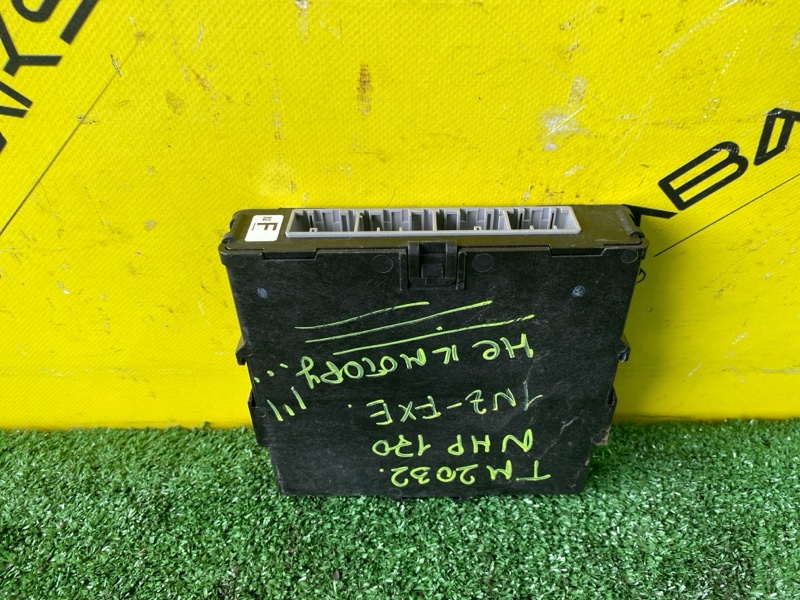 TM2032.
NHP 170
1NZ-FXE.
Не к мотору...!!!
F